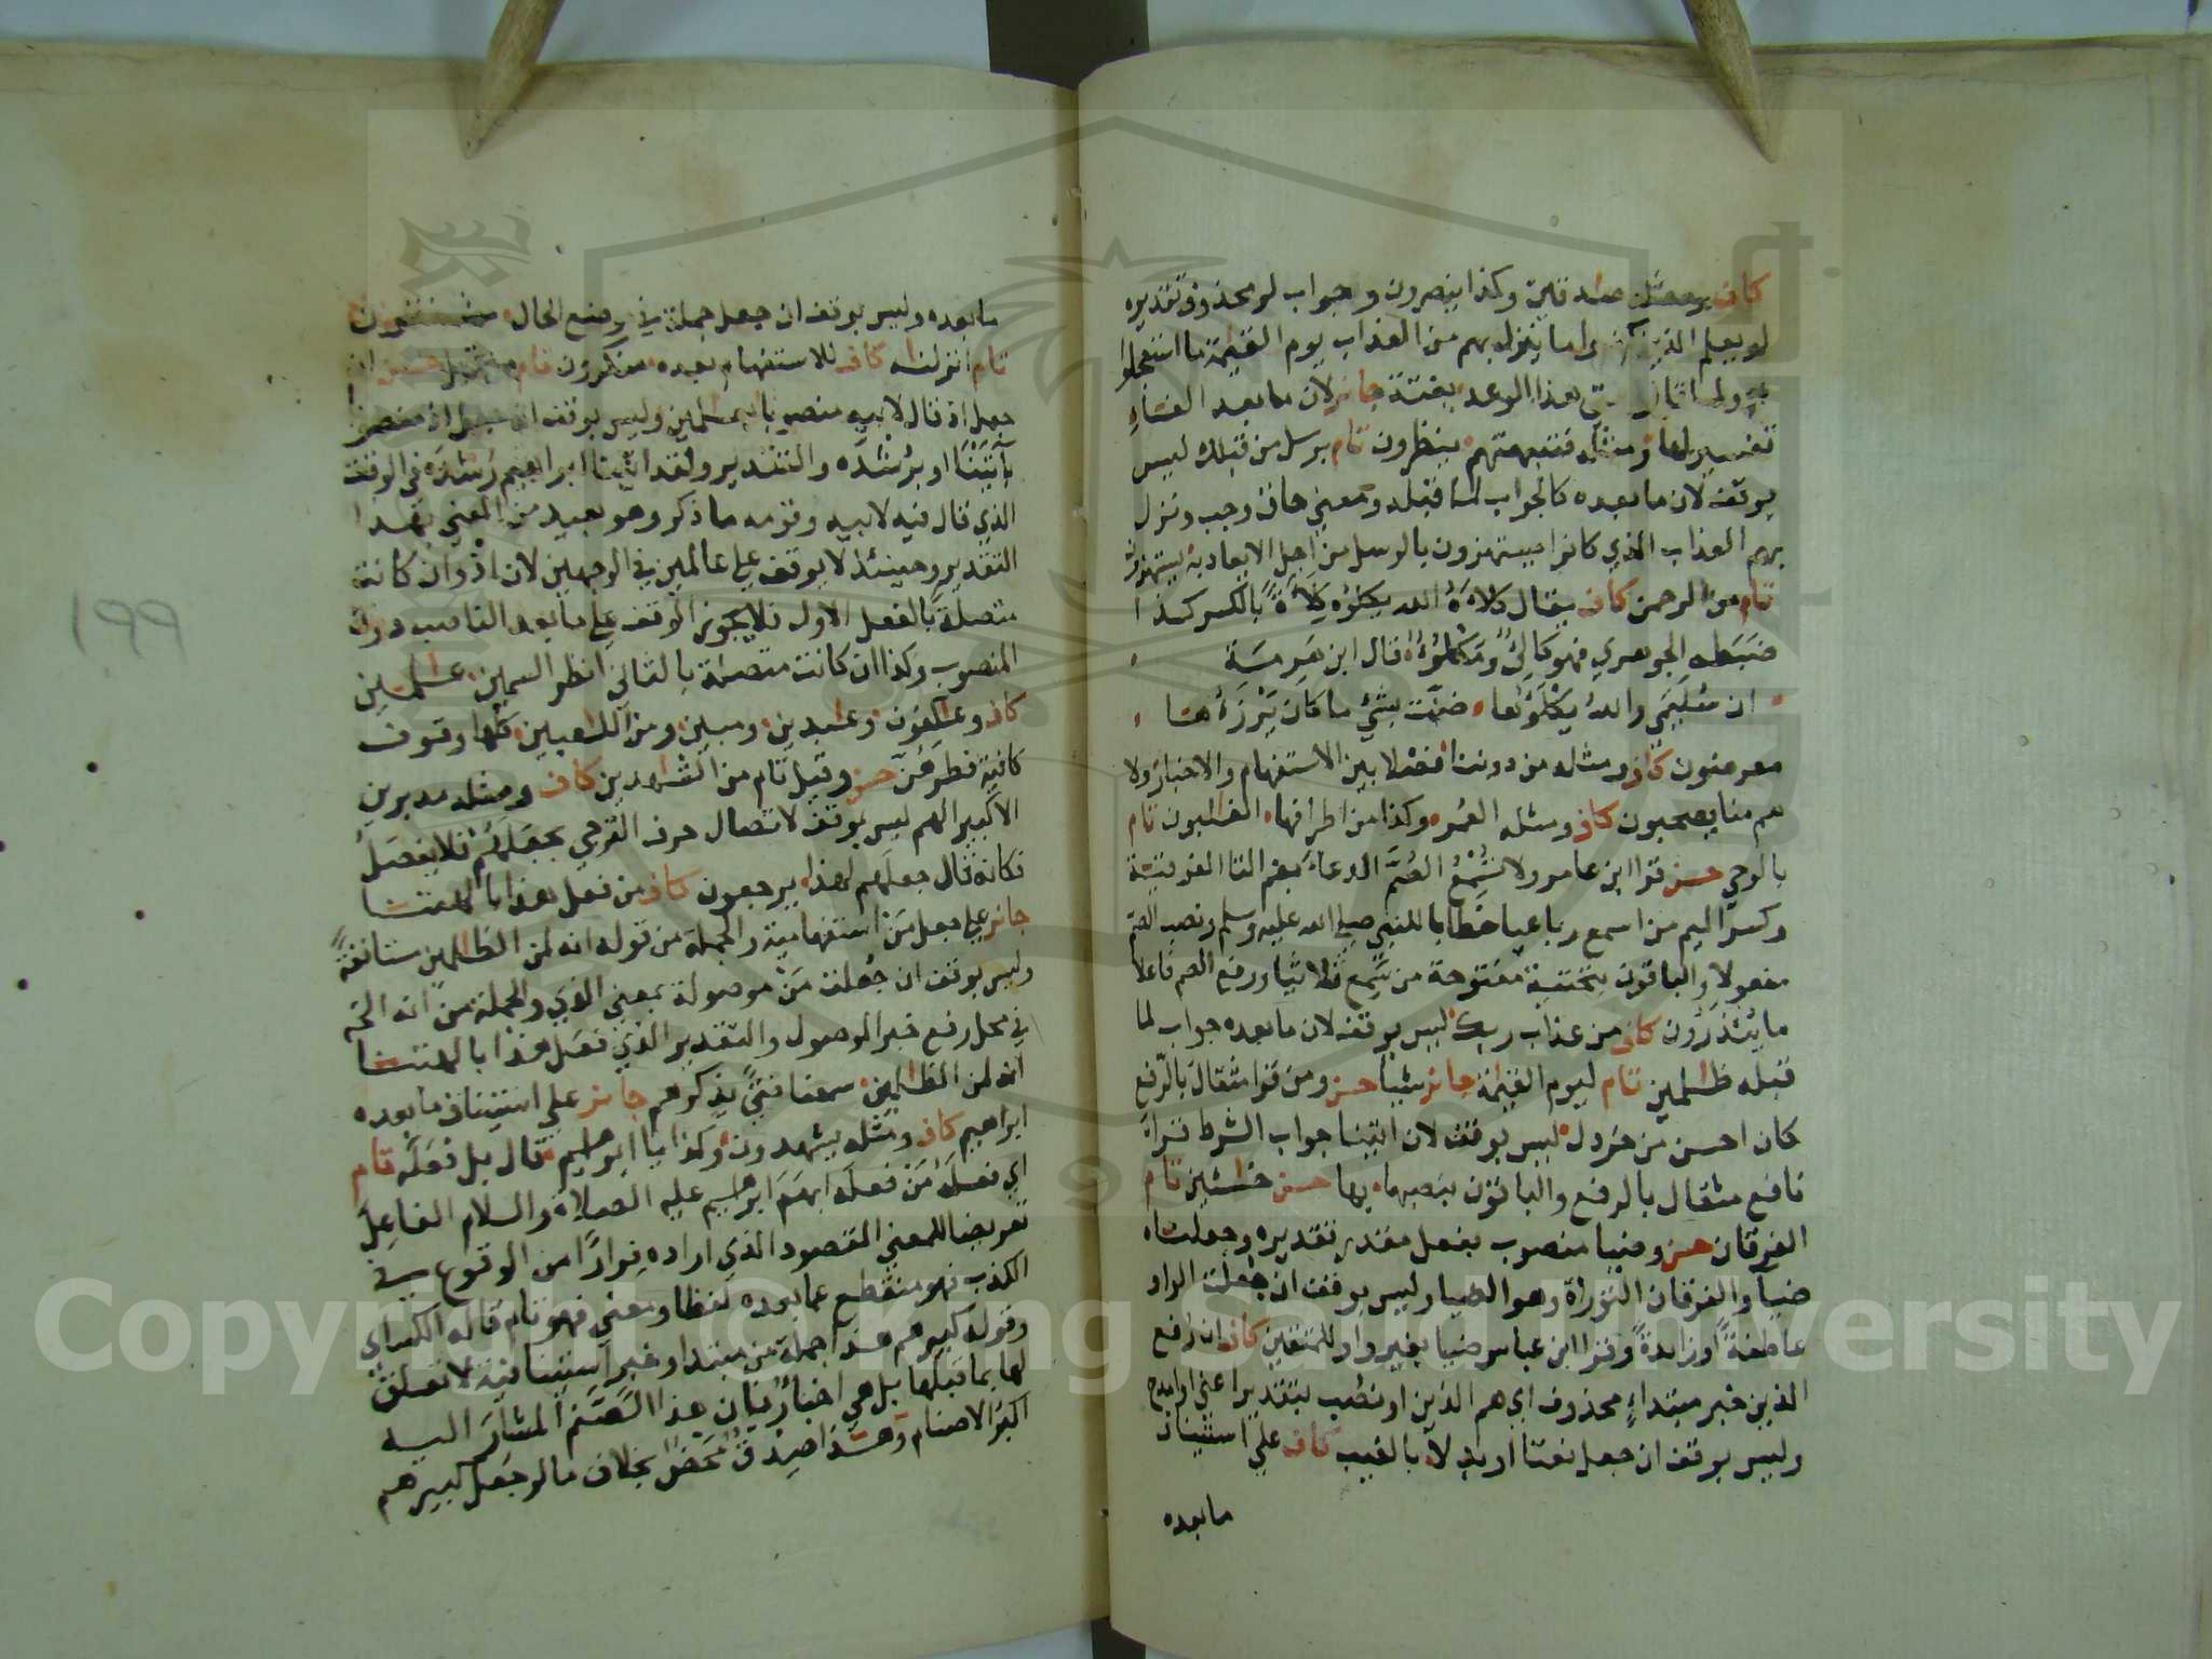 كاف ومثله صدقين وكذا ينصرون وجواب لو محذوف تقديره
لو يعلم الذين كفروا ما ينزل بهم من العذاب يوم القيمة ما استعجلوا
به ولما قالوا متى هذا الوعد بغتة جائز لان ما بعد الفاء
تفسير لها ومثله فتبهتهم ينظرون تام برسل من قبلك ليس
بوقف لان ما بعده كالجواب لما قبله ومعنى حاق وجب ونزل
بهم العذاب الذي كانوا يستهزون بالرسل من اجل الايعاد به يستهزون
تام من الرحمن كاف يقال كلاه الله يكلؤه كلأة بالكسر كذا
ضبطه الجوهري فهو كالئ ومكلؤ قال ابن هرمة
ان سليمي والله يكلؤها ضنت بشئ ما كان يرزءها
معرضون كاف ومثله من دوننا فصلا بين الاستفهام والاخبار ولا
هم منا يصحبون كاف ومثله العمر وكذا من اطرافها الغلبون تام
بالوحي حسن قرا ابن عامر ولا تسمع الصم الدعاء بضم التا الفوقية
وكسر الميم من اسمع رباعيا خطابا للنبي صلى الله عليه وسلم ونصب الصم
مفعولا والباقون بتحتية مفتوحة من سمع ثلاثيا ورفع الصم فاعلا
ما ينذرون كاف من عذاب ربك ليس بوقف لان ما بعده جواب لما
قبله ظلمين تام ليوم القيمة جائز شيا حسن ومن قرا مثقال بالرفع
كان احسن من خردل ليس بوقف لان اتينا جواب الشرط قراه
نافع مثقال بالرفع والباقون بنصبها بها حسن حسبين تام
الفرقان حسن وضيا منصوب بفعل مقدر تقديره وجعلناه
ضيا والفرقان التوراة وهو الضيا وليس بوقف ان جعلت الواو
عاطفة او زايدة وقرا ابن عباس ضيا بغير واو للمتقين كاف ان رفع
الذين خبر مبتداء محذوف اي هم الذين او نصب بتقدير اعني او امدح
وليس بوقف ان جعل نعتا او بدلا بالغيب كاف على استيناف
ما بعده
ما بعده وليس بوقف ان جعل جملة في موضع الحال مشفقون
تام انزلنه كاف للاستفهام بعده منكرون تام من قبل حسن ان
جعل اذ قال لابيه منصوبا بعلمين وليس بوقف ان جعل اذ منصوبا
بآتينا او برشده والتقدير ولقد اتينا ابراهيم رشده في الوقت
الذي قال فيه لابيه وقومه ما ذكر وهو بعيد من المعنى بهذا
التقدير وحينئذ لا يوقف على عالمين في الوجهين لان اذ وان كانت
متصلة بالفعل الاول فلا يجوز الوقف على ما بعد الناصب دون
المنصوب وكذا ان كانت متصلة بالثاني انظر السمين علمين
كاف وعكفون وعبدين ومبين ومن اللعبين كلها وقوف
كافية فطرهن حسن وقيل تام من الشهدين كاف ومثله مدبرين
الا كبيرا لهم ليس بوقف لاتصال حرف الترجي بجعلهم فلا يفصل
فكانه قال جعلهم لهذا يرجعون كاف من فعل هذا بالهتنا
جائز على جعل من استفهامية والجملة من قوله انه لمن الظلمين مستانفة
وليس بوقف ان جعلت من موصولة بمعنى الذي والجملة من انه الخ
في محل رفع خبر الموصول والتقدير الذي فعل هذا بالهتنا
انه لمن الظلمين سمعنا فتى يذكرهم جائز على استيناف ما بعده
ابراهيم كاف ومثله يشهدون وكذا يا ابرهيم قال بل فعله تام
اي فعله من فعله ابهم ابرهيم عليه الصلاة والسلام الفاعل
تعريضا للمعنى المقصود الذي اراده فرارا من الوقوع في
الكذب فهو منقطع عما بعده لفظا ومعنى فهو تام قاله الكساي
وقوله كبيرهم هذا جملة من مبتدا وخبر استينافية لا تعلق
لها بما قبلها بل هي اخبار بان هذا الصنم المشار اليه
اكبر الاصنام وهذا صدق محض بخلاف ما لو جعل كبيرهم
١٩٩
Copyright © King Saud University